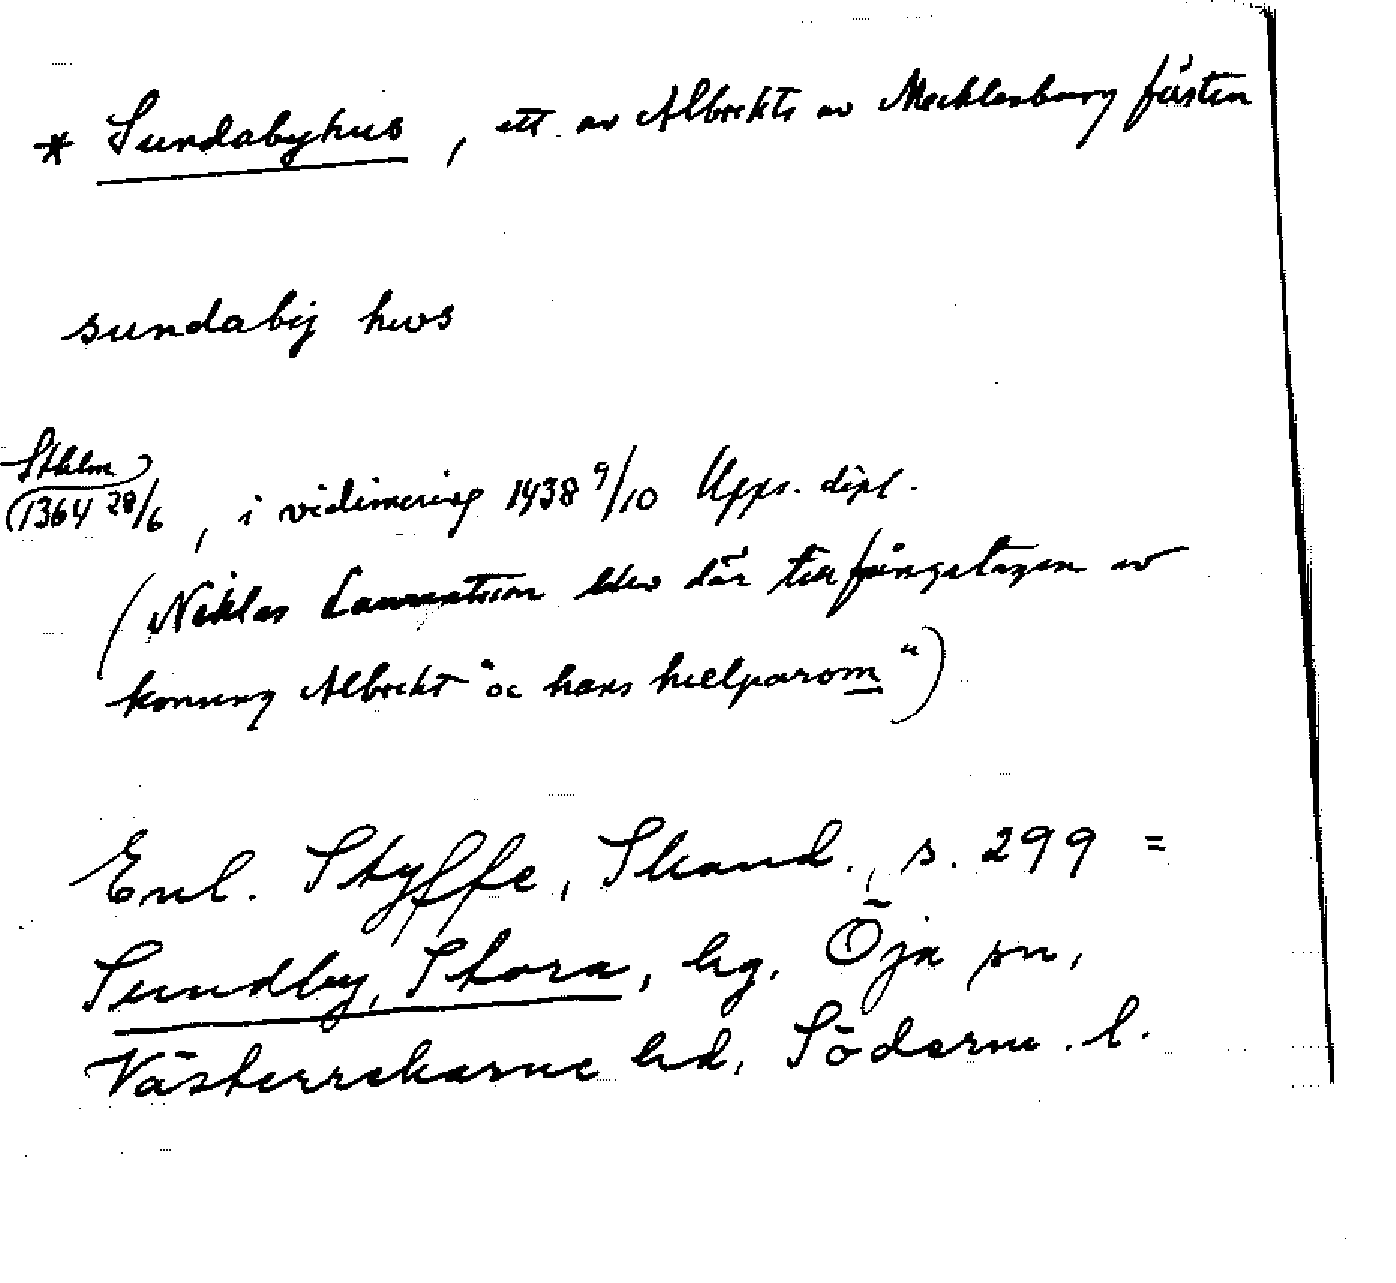 * Sundabyhus, ett av Albrekts av Mecklenburg fästen
sundabij hws
Sthlm
1364 28/6, i vidimering 1438 9/10 Upps. dipl.
(Niklas Laurentsson blev där tillfångatagen av
konung Albrekt "oc hans hielparom")
Enl. Styffe, Skand., s. 299 =
Sundby, Stora, hg. Öja sn,
Västerrekarne hd, Söderm. l.